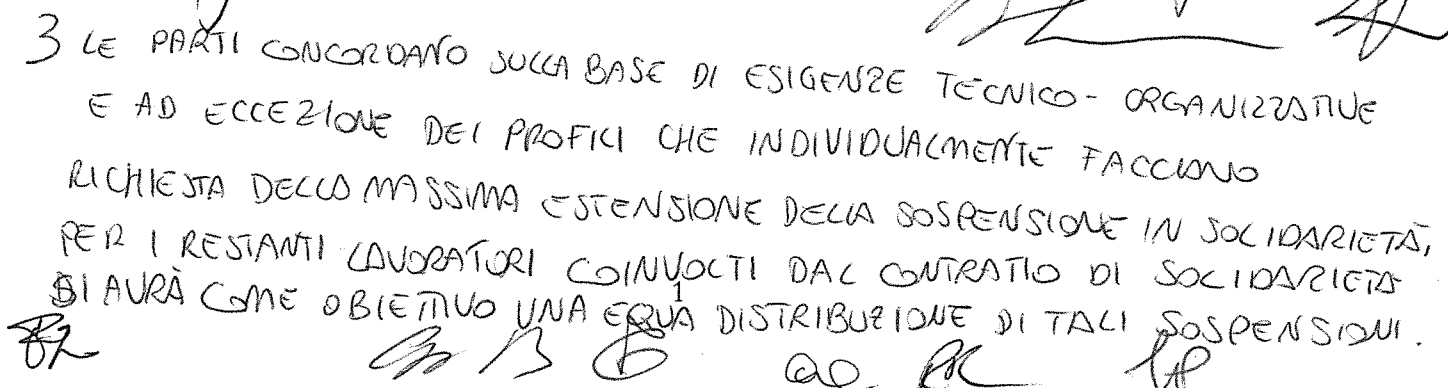 3 LE PARTI CONCORDANO SULLA BASE DI ESIGENZE TECNICO - ORGANIZZATIVE
E AD ECCEZIONE DEI PROFILI CHE INDIVIDUALMENTE FACCIANO
RICHIESTA DELLA MASSIMA ESTENSIONE DELLA SOSPENSIONE IN SOLIDARIETÀ,
PER I RESTANTI LAVORATORI COINVOLTI DAL CONTRATTO DI SOLIDARIETÀ
SI AVRÀ COME OBIETTIVO UNA EQUA DISTRIBUZIONE DI TALI SOSPENSIONI.
1